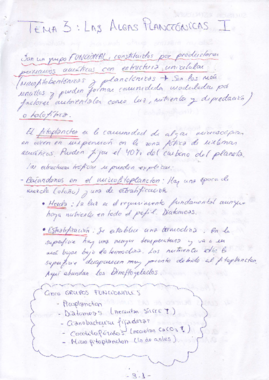 TEMA 3: LAS ALGAS PLANCTÓNICAS I
Son un grupo FUNCIONAL, constituidos por productores
primarios acuáticos con estructura unicelular.
microfitobentónicos y planctónicos → Son las más
sencillas y pueden formas comunidades moduladas por
factores ambientales como luz, nutrientes y depredación)
o holoférico.
El fitoplancton es la comunidad de algas microscópicas
que viven en suspensión en la zona fótica de sistemas
acuáticos. Pueden fijar el 40% del carbono del planeta.
Su estructura trófica se puede
en el microfitoplancton: Hay una época de
mezcla y una de estratificación
Mezcla: La luz es el requerimiento fundamental aunque
haya nutrientes en todo el perfil. Diatomeas.
Estratificación: Se establece una termoclina. En la
superficie hay una mayor temperatura y va a ser
más bajas bajo de termoclina. Los nutrientes de la
superficie desaparecen muy pronto debido al fitoplancton.
Aquí abundan los Dinoflagelados.
Cinco GRUPOS FUNCIONALES:
- Picoplancton
- Diatomeas (necesitan sílice)
- Cianobacterias fijadoras
- Cocolitofóridos (necesitan CaCO3)
- Microfitoplancton